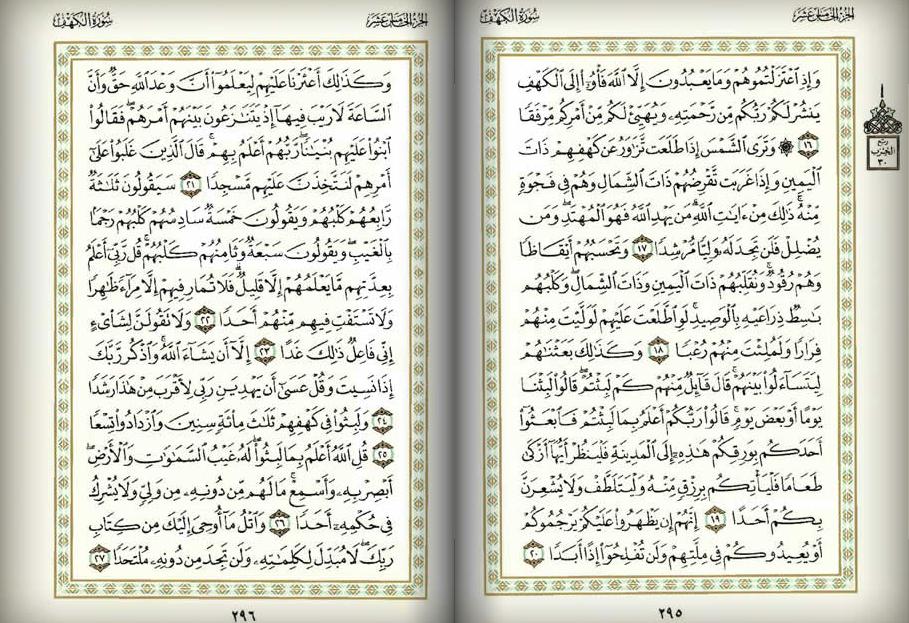 سُورَةُ الكَهْفِ
الجُزْءُ الخَامِسَ عَشَرَ
وَإِذِ ٱعْتَزَلْتُمُوهُمْ وَمَا يَعْبُدُونَ إِلَّا ٱللَّهَ فَأْوُۥٓا۟ إِلَى ٱلْكَهْفِ
يَنشُرْ لَكُمْ رَبُّكُم مِّن رَّحْمَتِهِۦ وَيُهَيِّئْ لَكُم مِّنْ أَمْرِكُم مِّرْفَقًا
١٦ ۞ وَتَرَى ٱلشَّمْسَ إِذَا طَلَعَت تَّزَٰوَرُ عَن كَهْفِهِمْ ذَاتَ
ٱلْيَمِينِ وَإِذَا غَرَبَت تَّقْرِضُهُمْ ذَاتَ ٱلشِّمَالِ وَهُمْ فِى فَجْوَةٍ
مِّنْهُ ۚ ذَٰلِكَ مِنْ ءَايَٰتِ ٱللَّهِ ۗ مَن يَهْدِ ٱللَّهُ فَهُوَ ٱلْمُهْتَدِ ۖ وَمَن
يُضْلِلْ فَلَن تَجِدَ لَهُۥ وَلِيًّا مُّرْشِدًا ١٧ وَتَحْسَبُهُمْ أَيْقَاظًا
وَهُمْ رُقُودٌ ۚ وَنُقَلِّبُهُمْ ذَاتَ ٱلْيَمِينِ وَذَاتَ ٱلشِّمَالِ ۖ وَكَلْبُهُم
بَٰسِطٌ ذِرَاعَيْهِ بِٱلْوَصِيدِ ۚ لَوِ ٱطَّلَعْتَ عَلَيْهِمْ لَوَلَّيْتَ مِنْهُمْ
فِرَارًا وَلَمُلِئْتَ مِنْهُمْ رُعْبًا ١٨ وَكَذَٰلِكَ بَعَثْنَٰهُمْ
لِيَتَسَآءَلُوا۟ بَيْنَهُمْ ۚ قَالَ قَآئِلٌ مِّنْهُمْ كَمْ لَبِثْتُمْ ۖ قَالُوا۟ لَبِثْنَا
يَوْمًا أَوْ بَعْضَ يَوْمٍ ۚ قَالُوا۟ رَبُّكُمْ أَعْلَمُ بِمَا لَبِثْتُمْ فَٱبْعَثُوٓا۟
أَحَدَكُم بِوَرِقِكُمْ هَٰذِهِۦٓ إِلَى ٱلْمَدِينَةِ فَلْيَنظُرْ أَيُّهَآ أَزْكَىٰ
طَعَامًا فَلْيَأْتِكُم بِرِزْقٍ مِّنْهُ وَلْيَتَلَطَّفْ وَلَا يُشْعِرَنَّ
بِكُمْ أَحَدًا ١٩ إِنَّهُمْ إِن يَظْهَرُوا۟ عَلَيْكُمْ يَرْجُمُوكُمْ
أَوْ يُعِيدُوكُمْ فِى مِلَّتِهِمْ وَلَن تُفْلِحُوٓا۟ إِذًا أَبَدًا ٢٠
رُبع
الحِزْب
٣٠
٢٩٥
سُورَةُ الكَهْفِ
الجُزْءُ الخَامِسَ عَشَرَ
وَكَذَٰلِكَ أَعْثَرْنَا عَلَيْهِمْ لِيَعْلَمُوٓا۟ أَنَّ وَعْدَ ٱللَّهِ حَقٌّ وَأَنَّ
ٱلسَّاعَةَ لَا رَيْبَ فِيهَآ إِذْ يَتَنَٰزَعُونَ بَيْنَهُمْ أَمْرَهُمْ ۖ فَقَالُوا۟
ٱبْنُوا۟ عَلَيْهِم بُنْيَٰنًا ۖ رَّبُّهُمْ أَعْلَمُ بِهِمْ ۚ قَالَ ٱلَّذِينَ غَلَبُوا۟ عَلَىٰٓ
أَمْرِهِمْ لَنَتَّخِذَنَّ عَلَيْهِم مَّسْجِدًا ٢١ سَيَقُولُونَ ثَلَٰثَةٌ
رَّابِعُهُمْ كَلْبُهُمْ وَيَقُولُونَ خَمْسَةٌ سَادِسُهُمْ كَلْبُهُمْ رَجْمًۢا
بِٱلْغَيْبِ ۖ وَيَقُولُونَ سَبْعَةٌ وَثَامِنُهُمْ كَلْبُهُمْ ۚ قُل رَّبِّىٓ أَعْلَمُ
بِعِدَّتِهِم مَّا يَعْلَمُهُمْ إِلَّا قَلِيلٌ ۗ فَلَا تُمَارِ فِيهِمْ إِلَّا مِرَآءً ظَٰهِرًا
وَلَا تَسْتَفْتِ فِيهِم مِّنْهُمْ أَحَدًا ٢٢ وَلَا تَقُولَنَّ لِشَا۟ىْءٍ
إِنِّى فَاعِلٌ ذَٰلِكَ غَدًا ٢٣ إِلَّآ أَن يَشَآءَ ٱللَّهُ ۚ وَٱذْكُر رَّبَّكَ
إِذَا نَسِيتَ وَقُلْ عَسَىٰٓ أَن يَهْدِيَنِ رَبِّى لِأَقْرَبَ مِنْ هَٰذَا رَشَدًا
٢٤ وَلَبِثُوا۟ فِى كَهْفِهِمْ ثَلَٰثَ مِا۟ئَةٍ سِنِينَ وَٱزْدَادُوا۟ تِسْعًا
٢٥ قُلِ ٱللَّهُ أَعْلَمُ بِمَا لَبِثُوا۟ ۖ لَهُۥ غَيْبُ ٱلسَّمَٰوَٰتِ وَٱلْأَرْضِ ۖ
أَبْصِرْ بِهِۦ وَأَسْمِعْ ۚ مَا لَهُم مِّن دُونِهِۦ مِن وَلِىٍّ وَلَا يُشْرِكُ
فِى حُكْمِهِۦٓ أَحَدًا ٢٦ وَٱتْلُ مَآ أُوحِىَ إِلَيْكَ مِن كِتَابِ
رَبِّكَ ۖ لَا مُبَدِّلَ لِكَلِمَٰتِهِۦ وَلَن تَجِدَ مِن دُونِهِۦ مُلْتَحَدًا ٢٧
٢٩٦